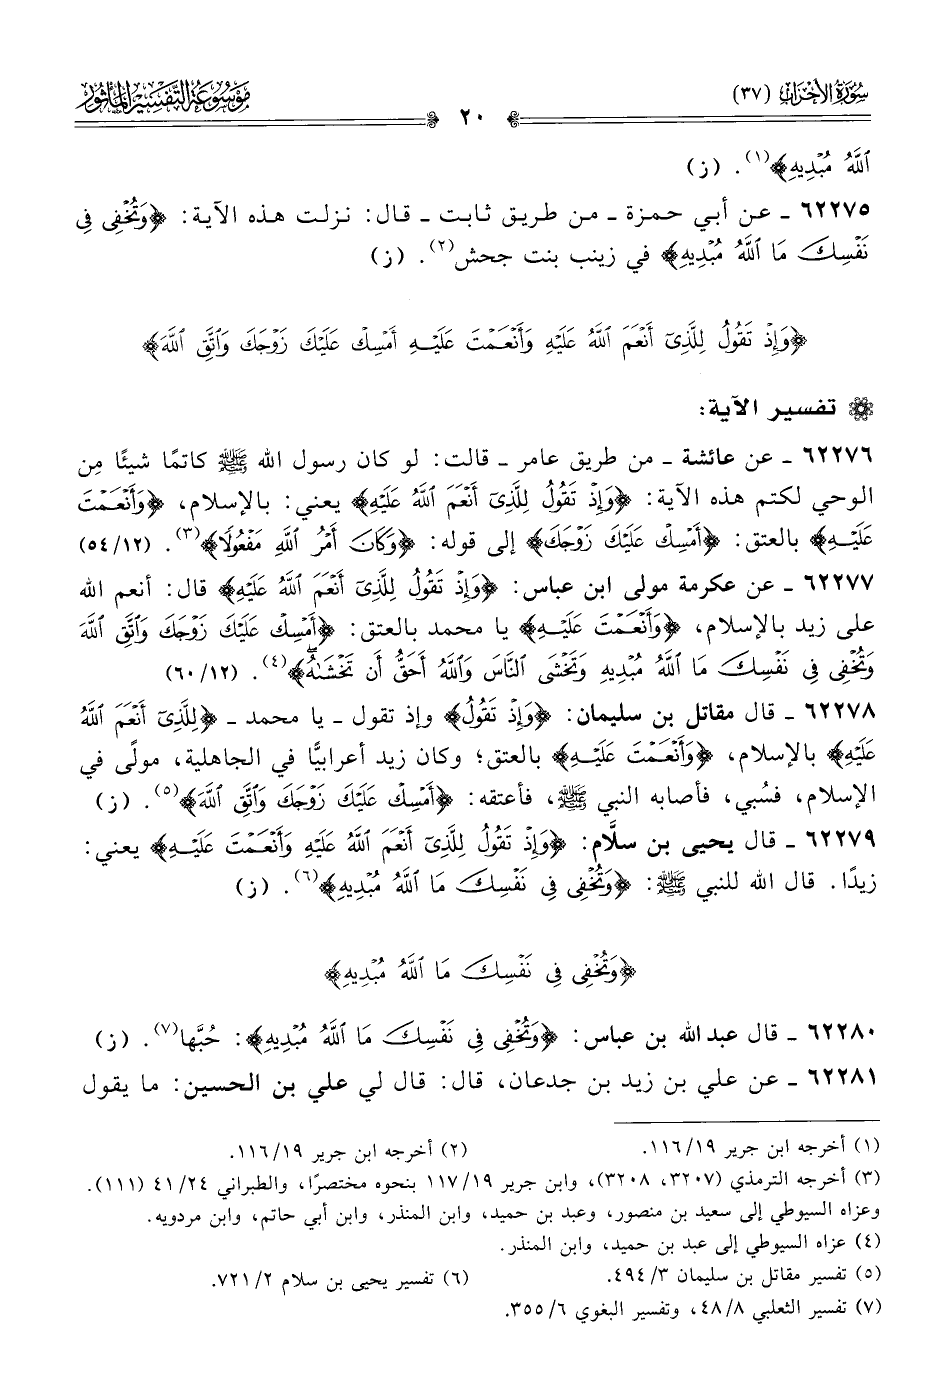 سُورَةُ الأَحْزَابِ (٣٧)
٢٠
مَوْسُوعَةُ التَّفْسِيرِ المَأْثُورِ
ٱللَّهُ مُبْدِيهِ﴾(١). (ز)
٦٢٢٧٥ ـ عن أبي حمزة ـ من طريق ثابت ـ قال: نزلت هذه الآية: ﴿وَتُخْفِى فِى
نَفْسِكَ مَا ٱللَّهُ مُبْدِيهِ﴾ في زينب بنت جحش(٢). (ز)
﴿وَإِذْ تَقُولُ لِلَّذِىٓ أَنْعَمَ ٱللَّهُ عَلَيْهِ وَأَنْعَمْتَ عَلَيْهِ أَمْسِكْ عَلَيْكَ زَوْجَكَ وَٱتَّقِ ٱللَّهَ﴾
تفسير الآية:
٦٢٢٧٦ ـ عن عائشة ـ من طريق عامر ـ قالت: لو كان رسول الله ﷺ كاتمًا شيئًا مِن
الوحي لكتم هذه الآية: ﴿وَإِذْ تَقُولُ لِلَّذِىٓ أَنْعَمَ ٱللَّهُ عَلَيْهِ﴾ يعني: بالإسلام، ﴿وَأَنْعَمْتَ
عَلَيْهِ﴾ بالعتق: ﴿أَمْسِكْ عَلَيْكَ زَوْجَكَ﴾ إلى قوله: ﴿وَكَانَ أَمْرُ ٱللَّهِ مَفْعُولًا﴾(٣). (١٢/ ٥٤)
٦٢٢٧٧ ـ عن عكرمة مولى ابن عباس: ﴿وَإِذْ تَقُولُ لِلَّذِىٓ أَنْعَمَ ٱللَّهُ عَلَيْهِ﴾ قال: أنعم الله
على زيد بالإسلام، ﴿وَأَنْعَمْتَ عَلَيْهِ﴾ يا محمد بالعتق: ﴿أَمْسِكْ عَلَيْكَ زَوْجَكَ وَٱتَّقِ ٱللَّهَ
وَتُخْفِى فِى نَفْسِكَ مَا ٱللَّهُ مُبْدِيهِ وَتَخْشَى ٱلنَّاسَ وَٱللَّهُ أَحَقُّ أَن تَخْشَىٰهُ﴾(٤). (١٢/ ٦٠)
٦٢٢٧٨ ـ قال مقاتل بن سليمان: ﴿وَإِذْ تَقُولُ﴾ وإذ تقول ـ يا محمد ـ ﴿لِلَّذِىٓ أَنْعَمَ ٱللَّهُ
عَلَيْهِ﴾ بالإسلام، ﴿وَأَنْعَمْتَ عَلَيْهِ﴾ بالعتق؛ وكان زيد أعرابيًّا في الجاهلية، مولًى في
الإسلام، فسُبي، فأصابه النبي ﷺ، فأعتقه: ﴿أَمْسِكْ عَلَيْكَ زَوْجَكَ وَٱتَّقِ ٱللَّهَ﴾(٥). (ز)
٦٢٢٧٩ ـ قال يحيى بن سلَّام: ﴿وَإِذْ تَقُولُ لِلَّذِىٓ أَنْعَمَ ٱللَّهُ عَلَيْهِ وَأَنْعَمْتَ عَلَيْهِ﴾ يعني:
زيدًا. قال الله للنبي ﷺ: ﴿وَتُخْفِى فِى نَفْسِكَ مَا ٱللَّهُ مُبْدِيهِ﴾(٦). (ز)
﴿وَتُخْفِى فِى نَفْسِكَ مَا ٱللَّهُ مُبْدِيهِ﴾
٦٢٢٨٠ ـ قال عبد الله بن عباس: ﴿وَتُخْفِى فِى نَفْسِكَ مَا ٱللَّهُ مُبْدِيهِ﴾: حُبَّها(٧). (ز)
٦٢٢٨١ ـ عن علي بن زيد بن جدعان، قال: قال لي علي بن الحسين: ما يقول
(١) أخرجه ابن جرير ١٩/ ١١٦. (٢) أخرجه ابن جرير ١٩/ ١١٦.
(٣) أخرجه الترمذي (٣٢٠٧، ٣٢٠٨)، وابن جرير ١٩/ ١١٧ بنحوه مختصرًا، والطبراني ٢٤/ ٤١ (١١١).
وعزاه السيوطي إلى سعيد بن منصور، وعبد بن حميد، وابن المنذر، وابن أبي حاتم، وابن مردويه.
(٤) عزاه السيوطي إلى عبد بن حميد، وابن المنذر.
(٥) تفسير مقاتل بن سليمان ٣/ ٤٩٤. (٦) تفسير يحيى بن سلام ٢/ ٧٢١.
(٧) تفسير الثعلبي ٨/ ٤٨، وتفسير البغوي ٦/ ٣٥٥.